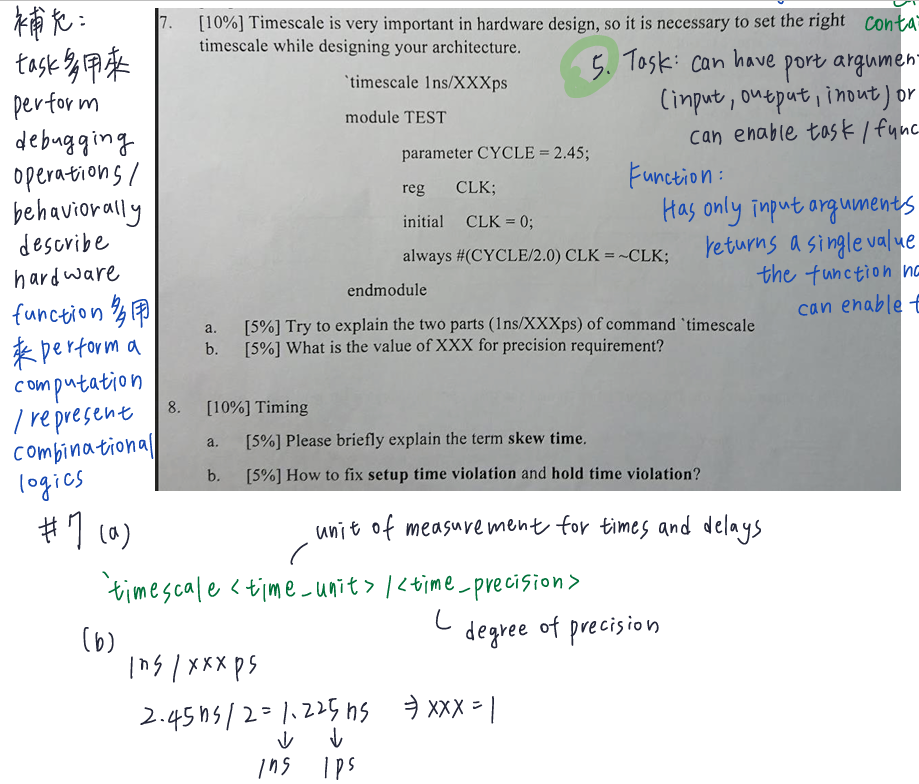 補充：
task多用來
perform
debugging
operations /
behaviorally
describe
hardware
function多用
來perform a
computation
/ represent
combinational
logics
7. [10%] Timescale is very important in hardware design, so it is necessary to set the right
timescale while designing your architecture.
`timescale 1ns/XXXps
module TEST
parameter CYCLE = 2.45;
reg CLK;
initial CLK = 0;
always #(CYCLE/2.0) CLK = ~CLK;
endmodule
a. [5%] Try to explain the two parts (1ns/XXXps) of command `timescale
b. [5%] What is the value of XXX for precision requirement?
8. [10%] Timing
a. [5%] Please briefly explain the term skew time.
b. [5%] How to fix setup time violation and hold time violation?
5. Task: can have port argumen
(input, output, inout) or
can enable task / func
Function:
Has only input arguments
returns a single value
the function na
can enable f
#7 (a)
unit of measurement for times and delays
`timescale <time_unit> / <time_precision>
degree of precision
(b)
1ns / xxx ps
2.45ns / 2 = 1.225 ns ⇒ xxx = 1
1ns 1ps